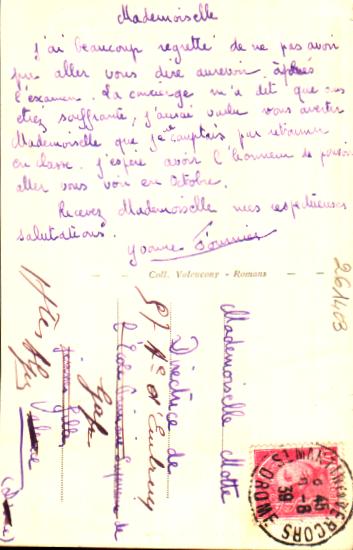 Mademoiselle
J'ai beaucoup regretté de ne pas avoir
pu aller vous dire aurevoir après
l'examen. La concierge m'a dit que vous
étiez souffrante, j'aurai voulu vous avertir
Mademoiselle que je ne comptais pas retourner
en classe. J'espère avoir l'honneur de pouvoir
aller vous voir en Octobre.
Recevez Mademoiselle mes respectueuses
salutations.
Yvonne Fournier
Coll. Valencony - Romans
261403
Mademoiselle Motte
Directrice de
l'École Primaire Supérieure de
57
Gap
Htes Alpes
DROME
45
9-8
39
VERCORS